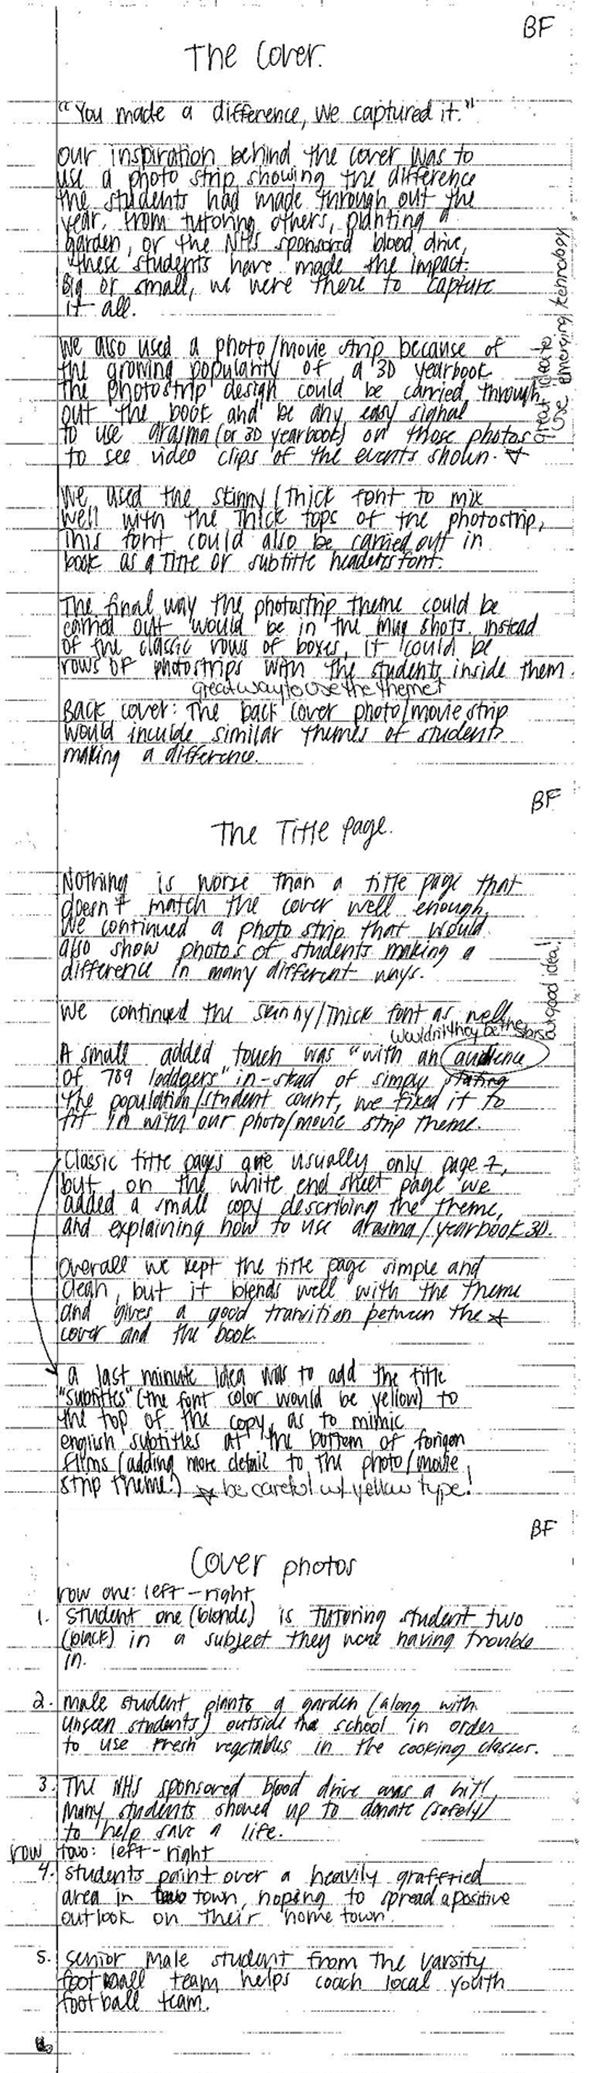 BF
The Cover.
"You made a difference, we captured it."
Our inspiration behind the cover was to
use a photo strip showing the difference
the students had made through out the
year. From tutoring others, planting a
garden, or the NHS sponsored blood drive,
these students have made the impact.
Big or small, we were there to capture
it all.
We also used a photo/movie strip because of
the growing popularity of a 3D yearbook
The photostrip design could be carried through
out the book and be any easy signal
to use arasma (or 3D yearbook) on those photos
to see video clips of the events shown.
great idea to
use emerging technology
We used the skinny/thick font to mix
well with the thick tops of the photostrip,
this font could also be carried out in
book as a title or subtitle headers font.
The final way the photostrip theme could be
carried out would be in the mug shots. instead
of the classic rows of boxes, it could be
rows of photostrips with the students inside them.
great way to use the theme
Back cover: The back cover photo/movie strip
would inculde similar themes of students
making a difference.
BF
The Title page.
Nothing is worse than a title page that
doesn't match the cover well enough,
We continued a photo strip that would
also show photo's of students making a
difference in many different ways.
We continued the skinny/thick font as well
wouldn't they be the stars
but good idea!
A small added touch was "with an audience
of 789 loddgers" in-stead of simply stating
the population/student count, we fixed it to
fit in with our photo/movie strip theme.
Classic title pages are usually only page 1,
but on the white end sheet page we
added a small copy describing the theme,
and explaining how to use arasma/yearbook 3D.
Overall we kept the title page simple and
clean, but it blends well with the theme
and gives a good tranition between the
cover and the book.
a last minute idea was to add the title
"subtitles" (the font color would be yellow) to
the top of the copy, as to mimic
english subtitles at the bottom of forigen
films (adding more detail to the photo/movie
strip theme.) be careful w/ yellow type!
BF
Cover photos
row one: left-right
1. student one (blonde) is tutoring student two
(black) in a subject they were having trouble
in.
2. male student plants a garden (along with
unseen students) outside the school in order
to use fresh vegetables in the cooking classes.
3. The NHS sponsored blood drive was a hit!
Many students showed up to donate (safely)
to help save a life.
row two: left-right
4. students paint over a heavily graffried
area in town, hoping to spread a positive
outlook on their home town.
5. Senior male student from the varsity
football team helps coach local youth
football team.